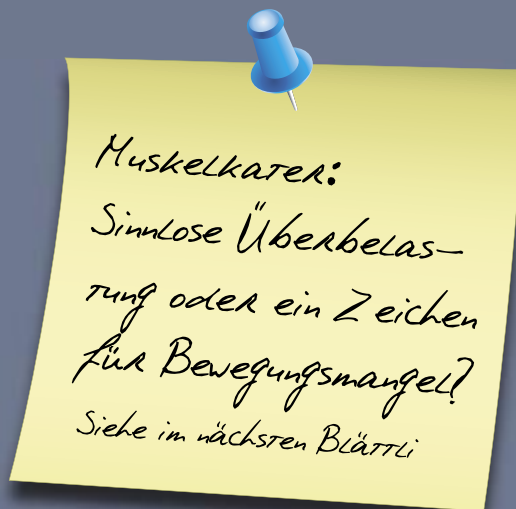 Muskelkater:
Sinnlose Überbelas-
tung oder ein Zeichen
für Bewegungsmangel?
Siehe im nächsten Blättli